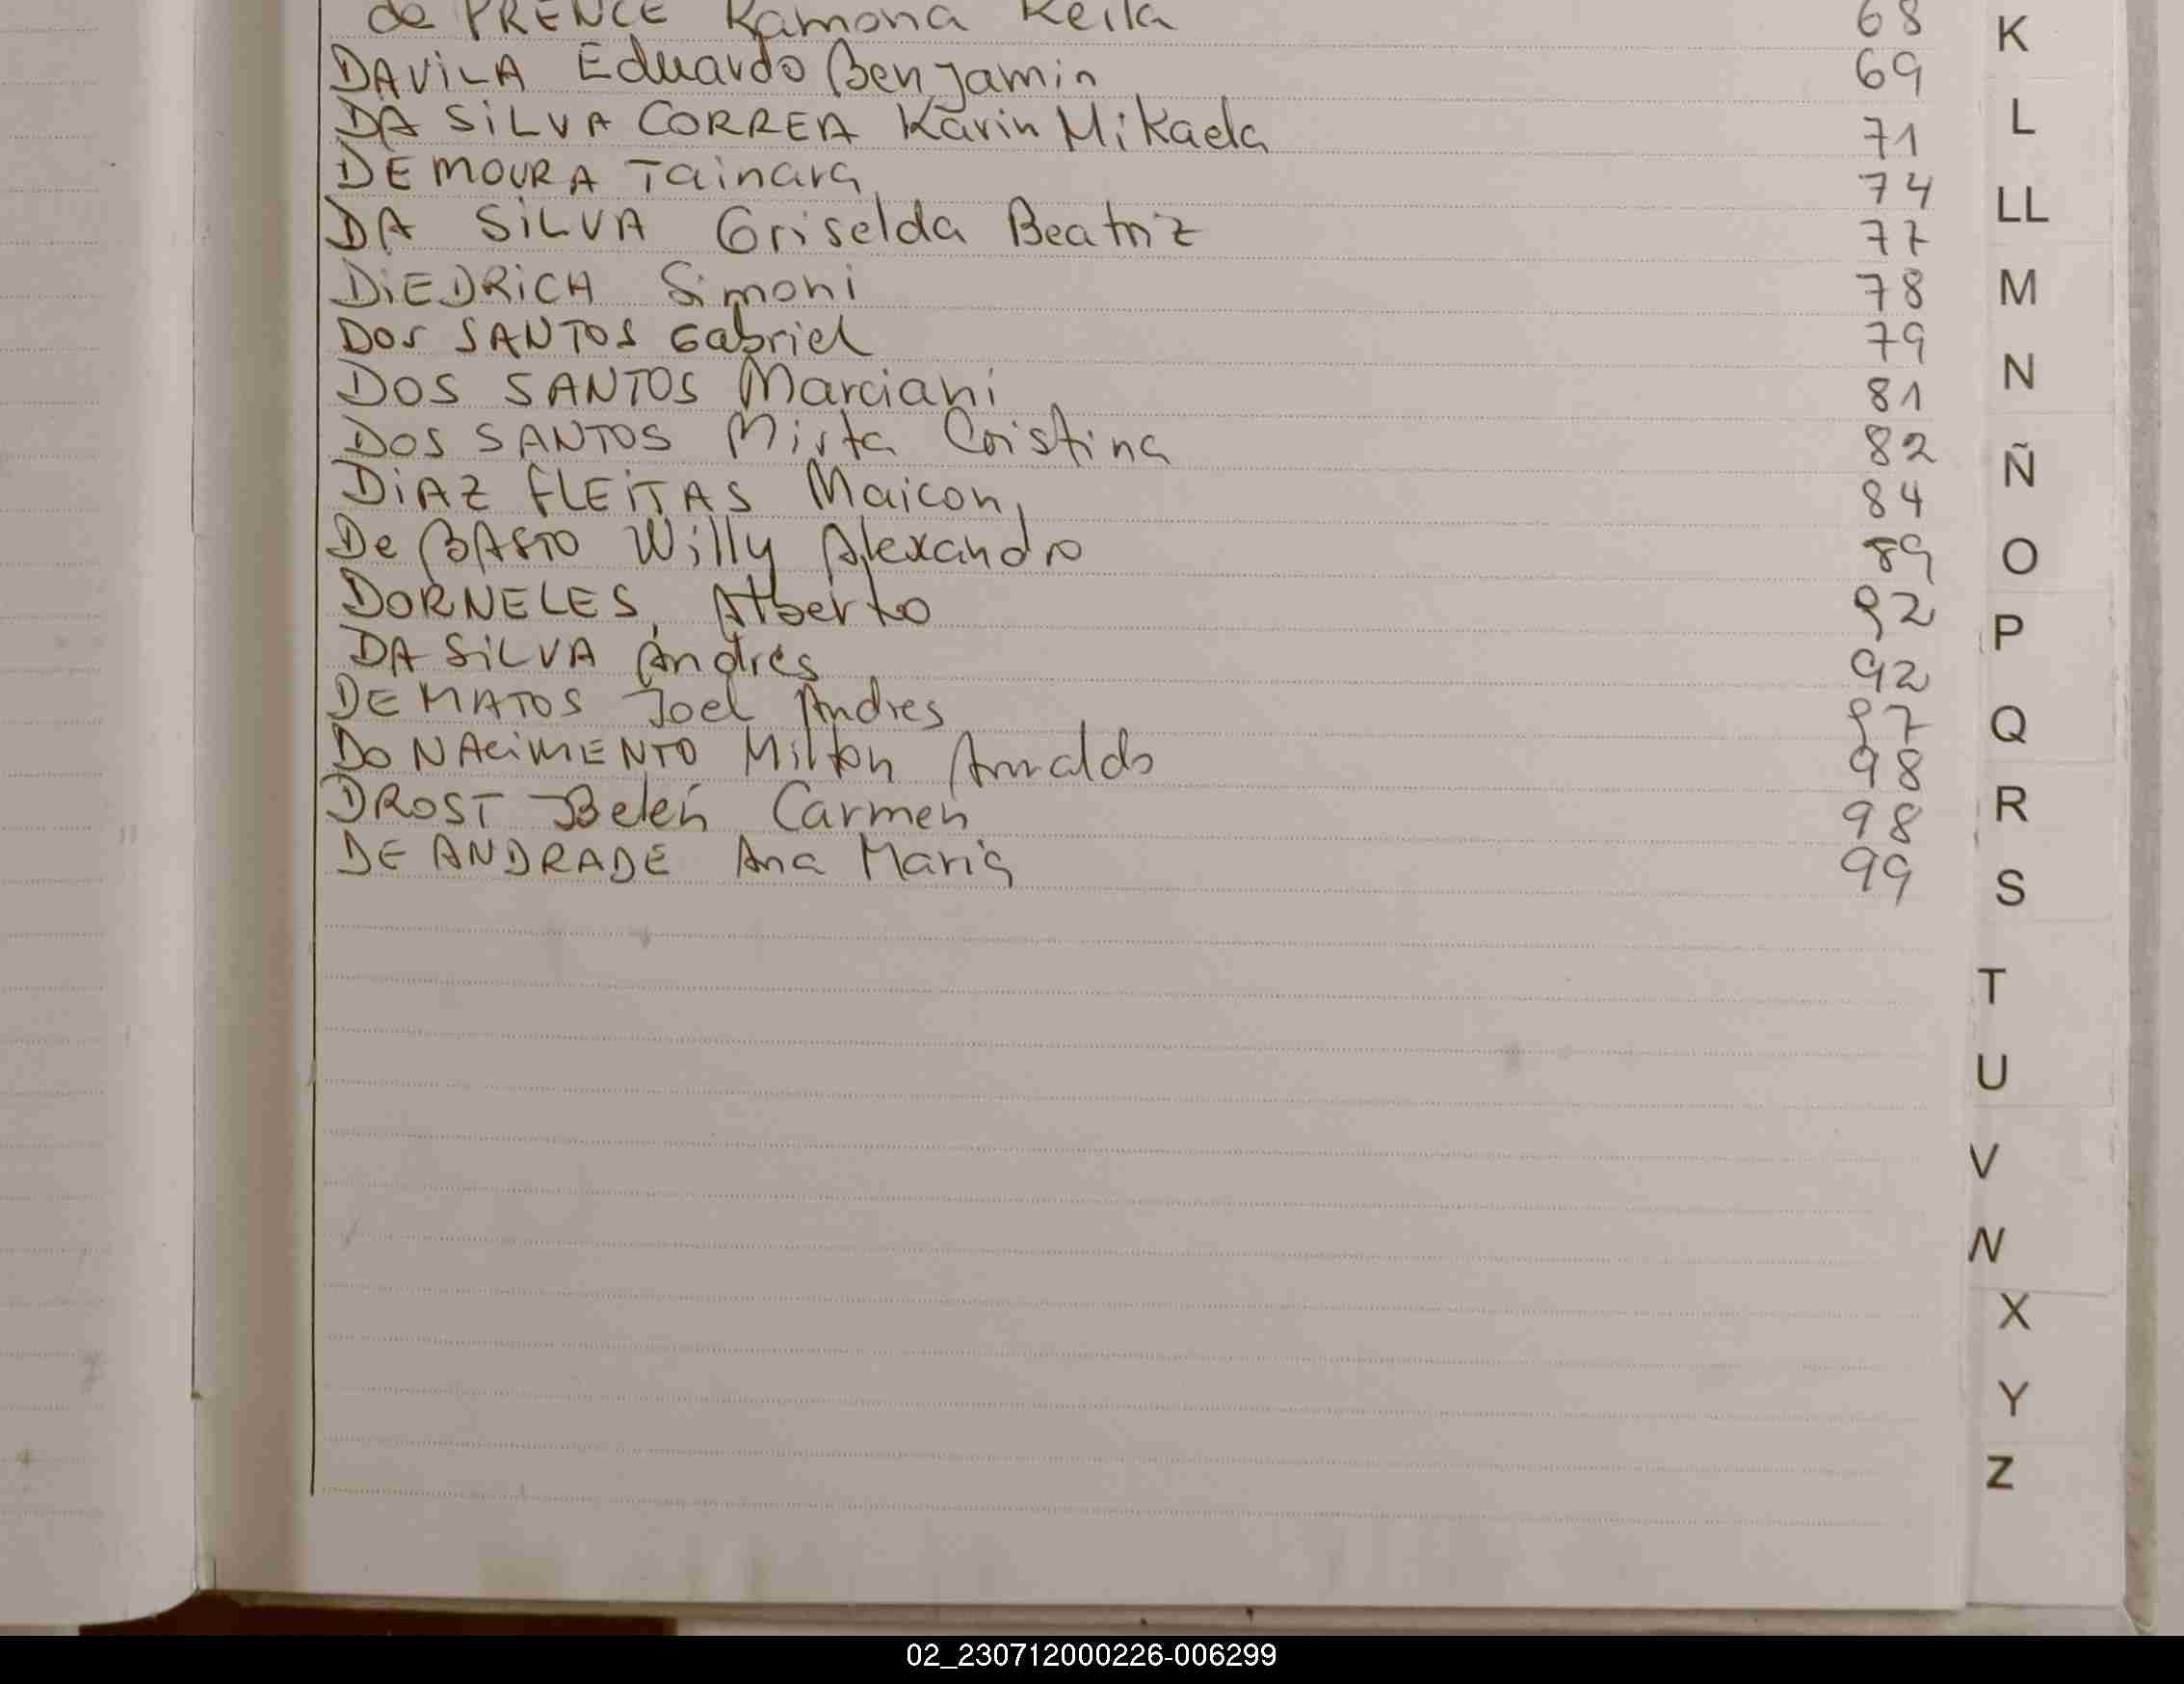 de PRENCE Ramona Keila 68
DAViLA Eduardo Benjamin 69
DA SiLVA CORREA Karin Mikaela 71
DE MOURA Tainara 74
DA SiLVA Griselda Beatriz 77
DiEDRiCH Simoni 78
DOS SANTOS Gabriel 79
DOS SANTOS Marciani 81
DOS SANTOS Mirta Cristina 82
DiAZ FLEiTAS Maicon 84
De BASTO Willy Alexandro 89
DORNELES, Alberto 92
DA SiLVA Andrés 92
DE MATOS Joel Andres 97
DO NACiMENTO Milton Arnaldo 98
DROST Belén Carmen 98
DE ANDRADE Ana Maria 99
K
L
LL
M
N
Ñ
O
P
Q
R
S
T
U
V
X
Y
Z
02_230712000226-006299